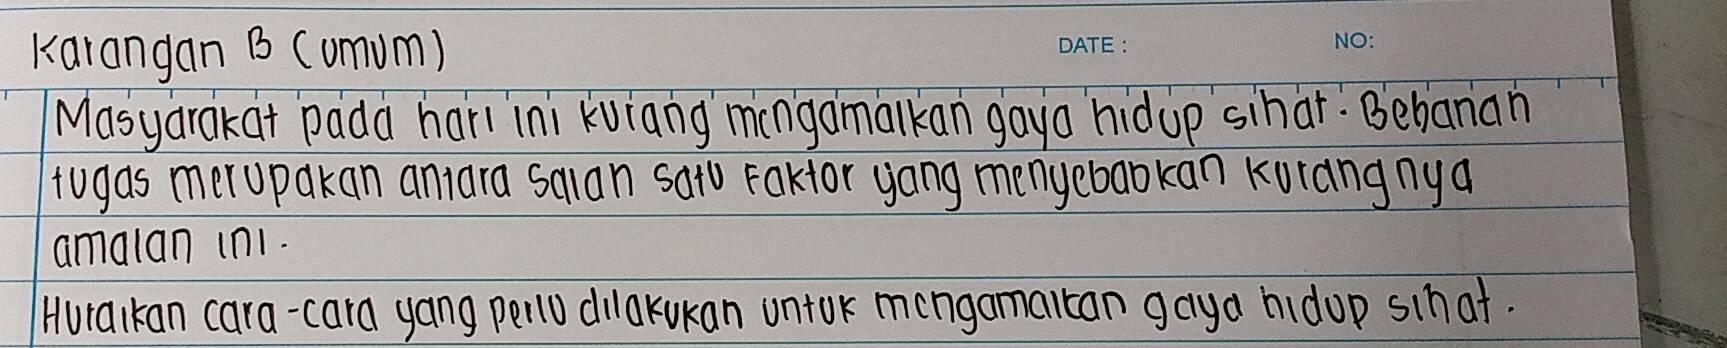 Karangan B (umum)
DATE : NO:
Masyarakat pada hari ini kurang mengamalkan gaya hidup sihat. Bebanan
tugas merupakan antara salah satu faktor yang menyebabkan kurangnya
amalan ini.
Huraikan cara-cara yang perlu dilakukan untuk mengamalkan gaya hidup sihat.